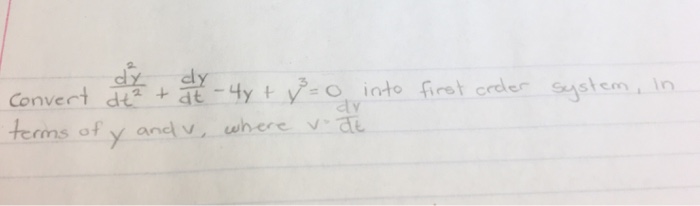 Convert d²y/dt² + dy/dt - 4y + y³ = 0 into first order system, in
terms of y and v, where v = dy/dt